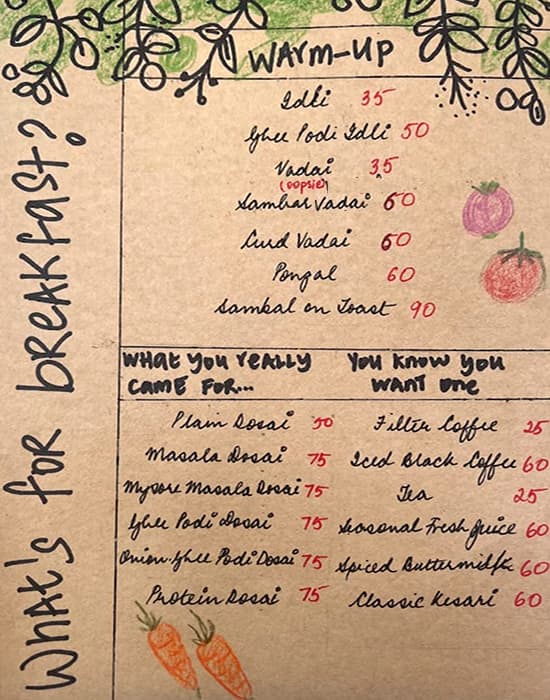 What's for breakfast?
WARM-UP
Idli 35
Ghee Podi Idli 50
Vadai 35
(oopsie)
Sambar Vadai 60
Curd Vadai 60
Pongal 60
Sambal on Toast 90
WHAT YOU REALLY CAME FOR...
Plain Dosai 50
Masala Dosai 75
Mysore Masala Dosai 75
Ghee Podi Dosai 75
Onion Ghee Podi Dosai 75
Protein Dosai 75
YOU KNOW YOU WANT ONE
Filter Coffee 25
Iced Black Coffee 60
Tea 25
Seasonal Fresh Juice 60
Spiced Buttermilk 60
Classic Kesari 60